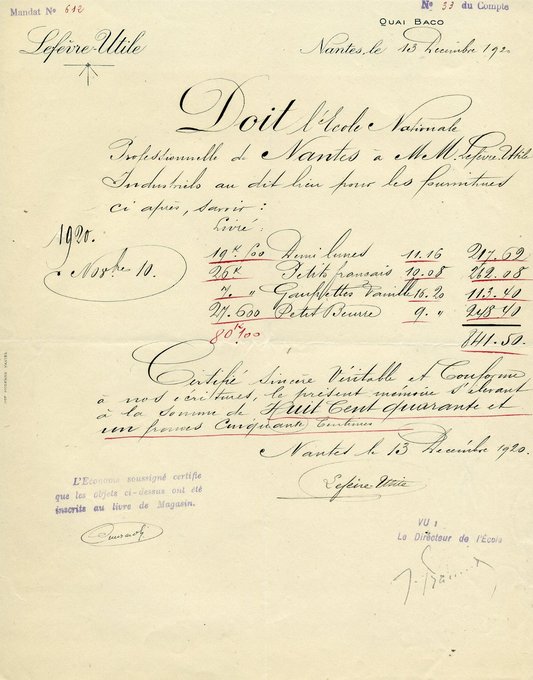 Mandat Nº 612
Nº 33 du Compte
Lefèvre-Utile
QUAI BACO
Nantes, le 13 Décembre 1920
Doit l'École Nationale
Professionnelle de Nantes à M.M. Lefèvre-Utile
Industriels au dit lieu pour les fournitures
ci après, savoir :
Livré :
1920.
Novbre 10.
19k.500 Demi lunes 11.16 217.62
26k Petits français 10.08 262.08
7. " Gaufrettes Vanille 16.20 113.40
27.600 Petit Beurre 9. " 248.40
80k100 841.50
Certifié Sincère Véritable et Conforme
à nos écritures, le présent mémoire s'élevant
à la somme de Huit Cent quarante et
un francs Cinquante Centimes
Nantes le 13 Décembre 1920.
Lefèvre Utile
L'Econome soussigné certifie
que les objets ci-dessus ont été
inscrits au livre de Magasin.
VU :
Le Directeur de l'École